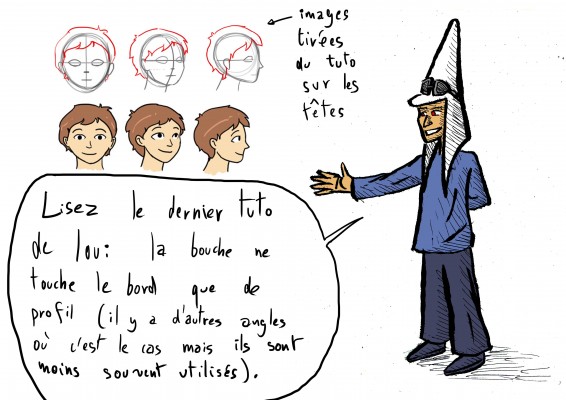 images
tirées
du tuto
sur les
têtes
Lisez le dernier tuto
de lou: la bouche ne
touche le bord que de
profil (il y a d'autres angles
où c'est le cas mais ils sont
moins souvent utilisés).